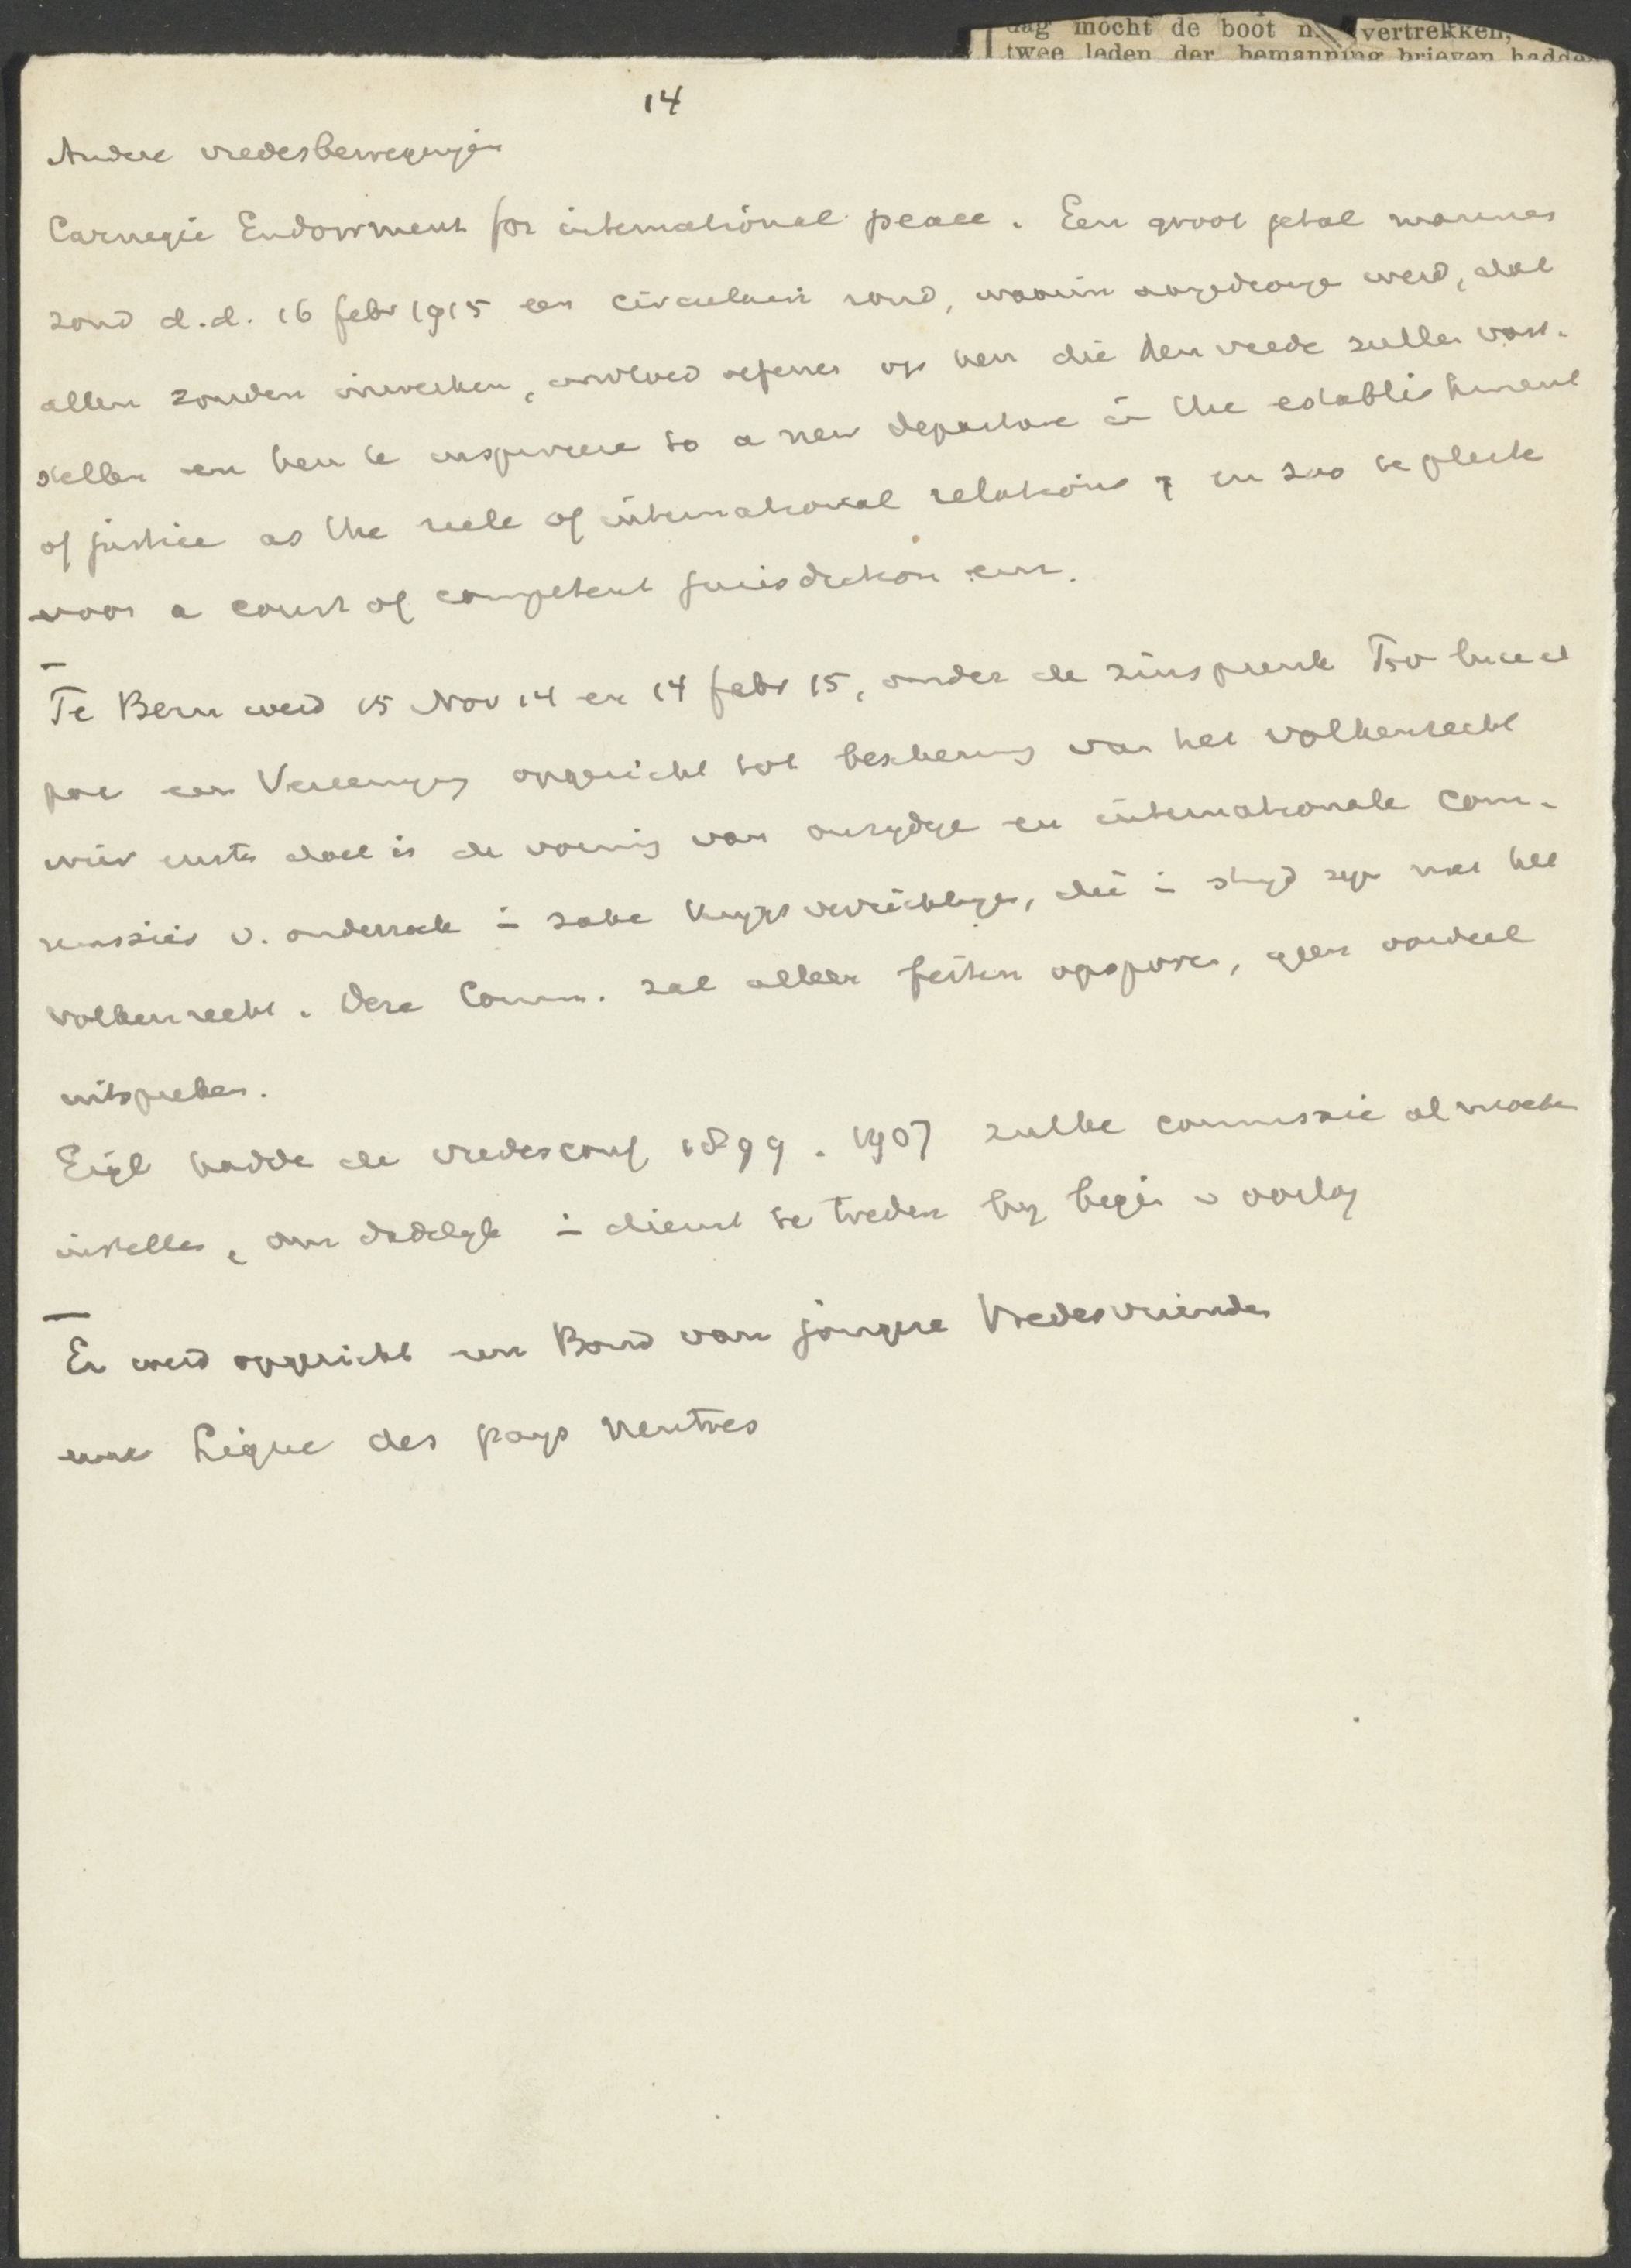 dag mocht de boot vertrekken,
twee leden der bemanning brieven hadde
14
Andere vredesbewegingen
Carnegie Endowment for international peace. Een groot getal mannen
zond d.d. 16 febr 1915 een circulair rond, waarin aangedrongen werd, dat
allen zouden inwerken, invloed oefenen op hen die den vrede zullen vast-
stellen en hen te inspireren to a new departure in the establishment
of justice as the rule of international relations, en zoo te pleite
voor a court of competent jurisdiction enz.
Te Bern werd 15 Nov 14 en 14 febr 15, onder de zinspreuk Pro luce et
pace een Vereeniging opgericht tot bescherming van het volkenrecht
wier eerste doel is de vorming van onzydige en internationale com-
missies v. onderzoek in zake krygsverrichtingen, die in stryd zyn met het
volkenrecht. Deze Comm. zal alleen feiten opsporen, geen oordeel
uitspreken.
Eigl hadde de vredesconf 1899. 1907 zulke commissie al moeten
instellen, om dadelyk in dienst te treden by begin v oorlog
Er werd opgericht een Bond van jongere Vredesvrienden
eene Ligue des pays Neutres